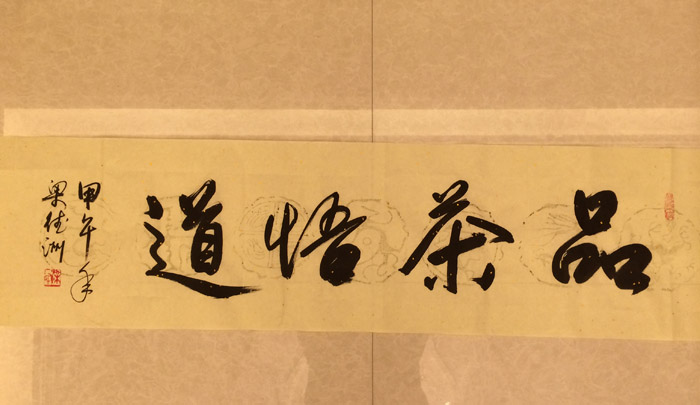 品茶悟道
甲午年
梁佳洲